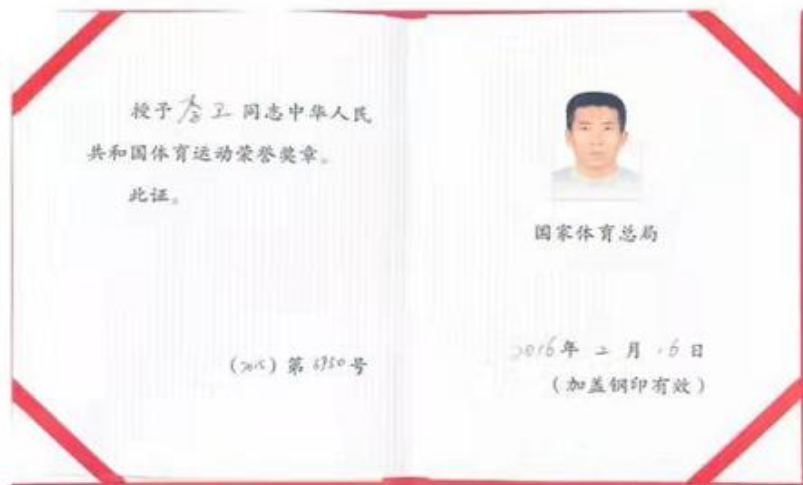 授予李卫同志中华人民
共和国体育运动荣誉奖章。
此证。
(2015)第6950号
国家体育总局
2016年2月16日
(加盖钢印有效)